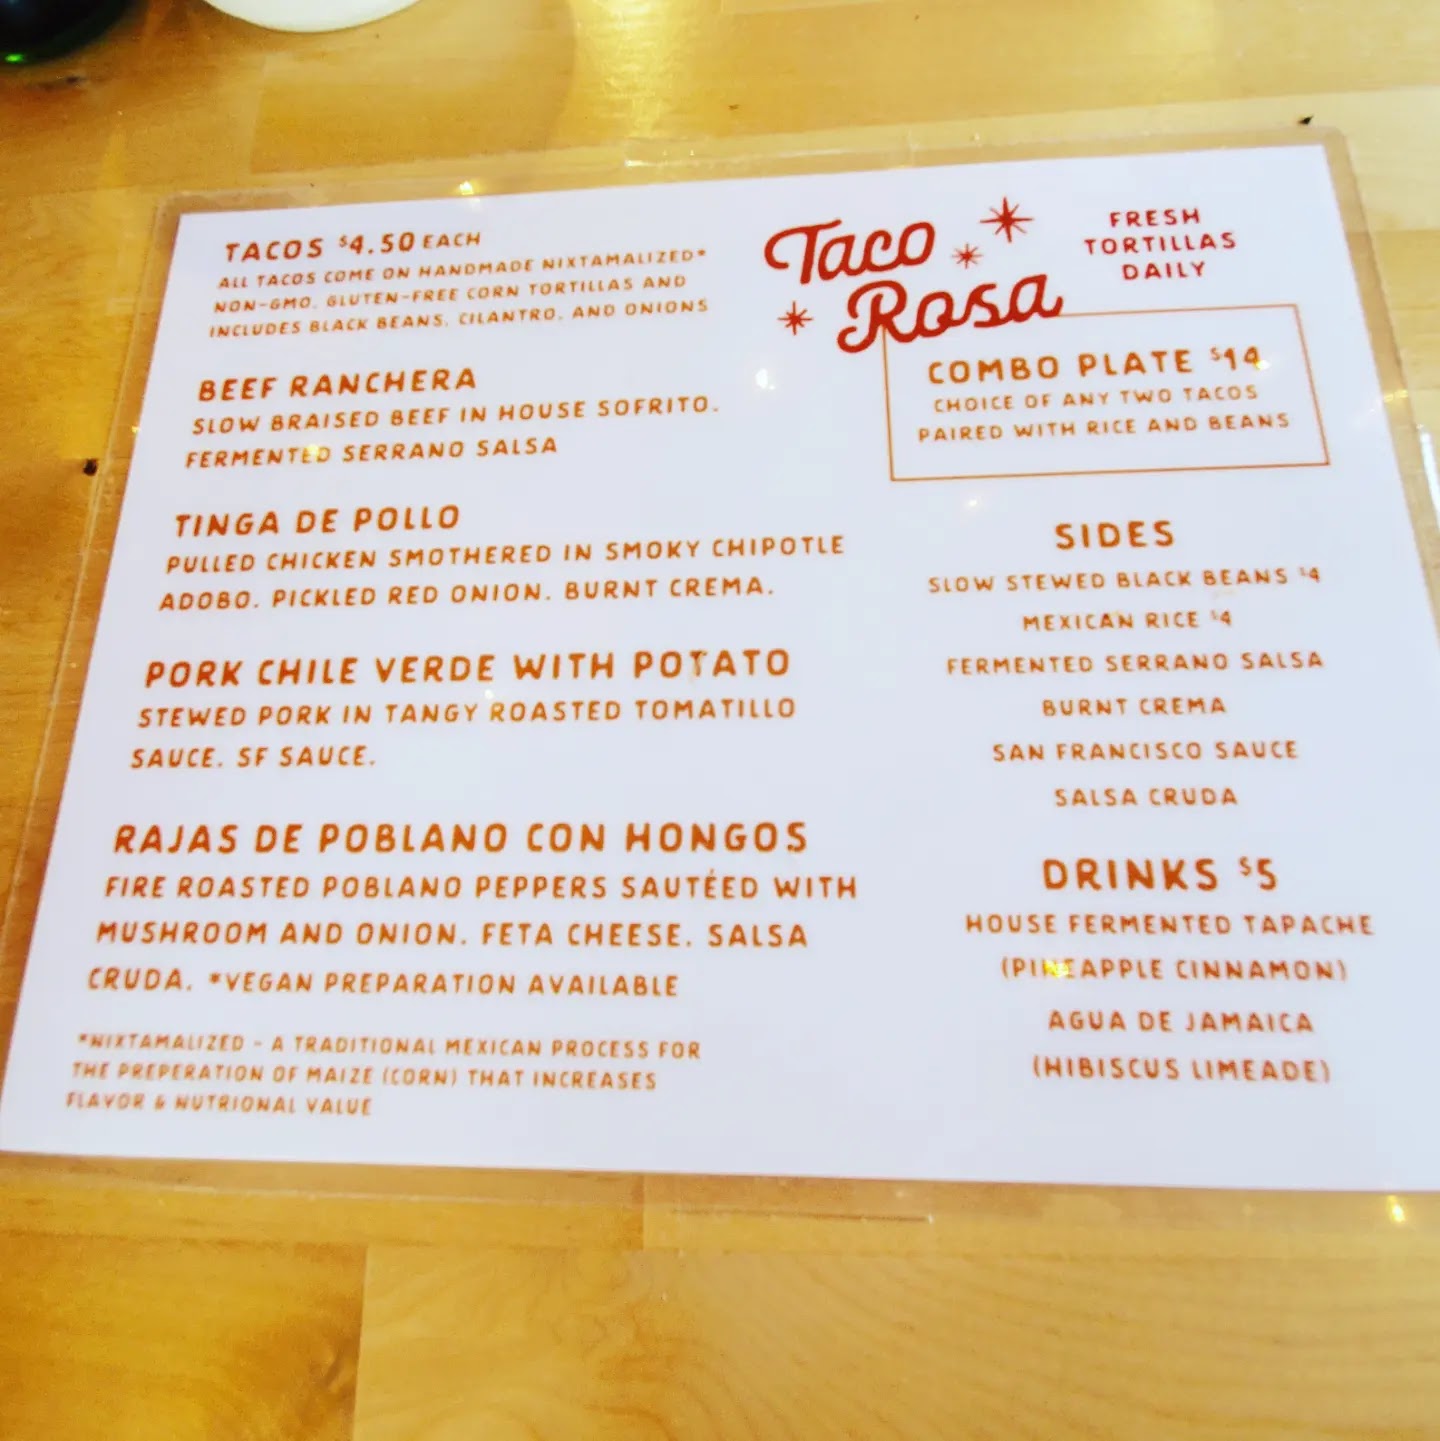 TACOS $4.50 EACH
ALL TACOS COME ON HANDMADE NIXTAMALIZED*
NON-GMO, GLUTEN-FREE CORN TORTILLAS AND
INCLUDES BLACK BEANS, CILANTRO, AND ONIONS
BEEF RANCHERA
SLOW BRAISED BEEF IN HOUSE SOFRITO.
FERMENTED SERRANO SALSA
TINGA DE POLLO
PULLED CHICKEN SMOTHERED IN SMOKY CHIPOTLE
ADOBO. PICKLED RED ONION. BURNT CREMA.
PORK CHILE VERDE WITH POTATO
STEWED PORK IN TANGY ROASTED TOMATILLO
SAUCE. SF SAUCE.
RAJAS DE POBLANO CON HONGOS
FIRE ROASTED POBLANO PEPPERS SAUTÉED WITH
MUSHROOM AND ONION. FETA CHEESE. SALSA
CRUDA. *VEGAN PREPARATION AVAILABLE
*NIXTAMALIZED - A TRADITIONAL MEXICAN PROCESS FOR
THE PREPERATION OF MAIZE (CORN) THAT INCREASES
FLAVOR & NUTRIONAL VALUE
Taco
Rosa
FRESH
TORTILLAS
DAILY
COMBO PLATE $14
CHOICE OF ANY TWO TACOS
PAIRED WITH RICE AND BEANS
SIDES
SLOW STEWED BLACK BEANS $4
MEXICAN RICE $4
FERMENTED SERRANO SALSA
BURNT CREMA
SAN FRANCISCO SAUCE
SALSA CRUDA
DRINKS $5
HOUSE FERMENTED TAPACHE
(PINEAPPLE CINNAMON)
AGUA DE JAMAICA
(HIBISCUS LIMEADE)